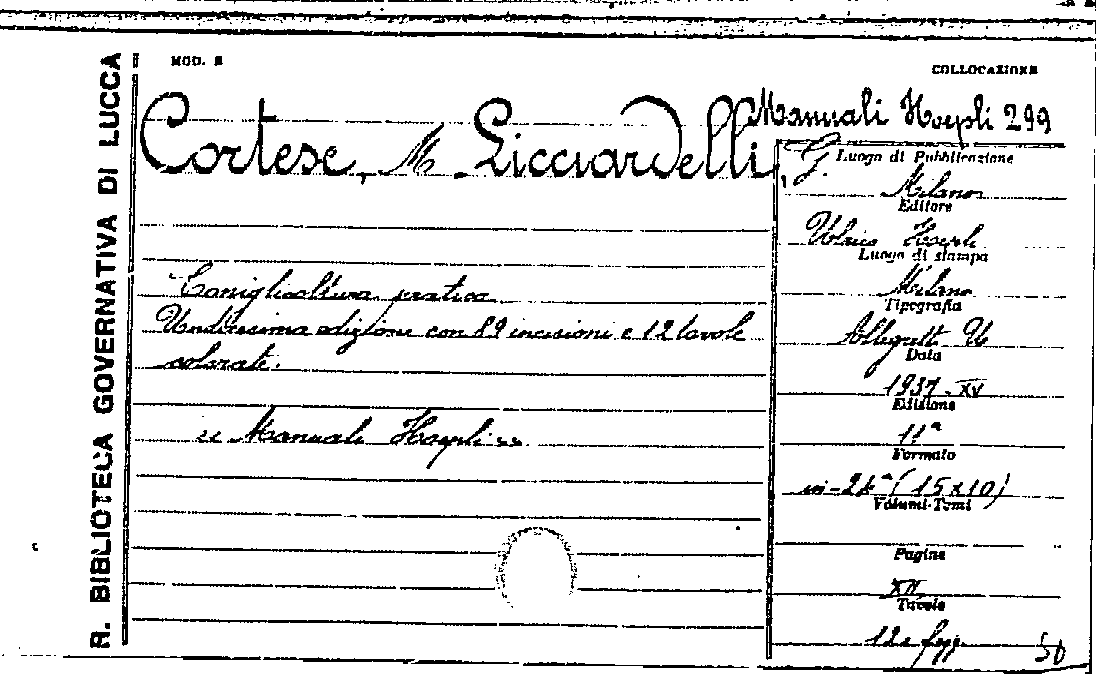 R. BIBLIOTECA GOVERNATIVA DI LUCCA
MOD. E
COLLOCAZIONE
Manuali Hoepli 299
Cortese, M. Licciardelli, G.
Coniglicoltura pratica
Undicesima edizione con 89 incisioni e 12 tavole
colorate.
" Manuali Hoepli "
Luogo di Pubblicazione
Milano
Editore
Ulrico Hoepli
Luogo di stampa
Milano
Tipografia
Allegretti U
Data
1937 - XV
Edizione
11ª
Formato
in-24° (15x10)
Volumi-Tomi
Pagine
XII
Tavole
12